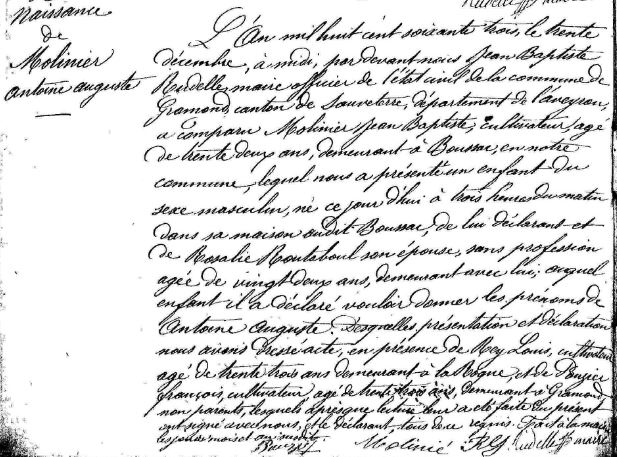 Naissance
de
Molinier
antoine auguste
L'An mil huit cent soixante trois, le trente
décembre, à midi, par devant nous Jean Baptiste
Rudelle, maire officier de l'état civil de la commune de
Gramond, canton de Sauveterre, département de l'aveyron,
a comparu Molinier Jean Baptiste, cultivateur, agé
de trente deux ans, demeurant à Boussac, en notre
commune, lequel nous a présenté un enfant du
sexe masculin, né ce jour d'hui à trois heures du matin
dans sa maison audit Boussac, de lui déclarant et
de Rosalie Routaboul son épouse, sans profession
agée de vingt deux ans, demeurant avec lui; auquel
enfant il a déclaré vouloir donner les prénoms de
Antoine Auguste. Desquelles présentation et déclaration
nous avons dressé acte, en présence de Rey Louis, cultivateur
agé de trente trois ans demeurant à la Rogue, et de
françois, cultivateur, agé de trente trois ans, demeurant à Gramond,
non parents, lesquels après que lecture leur a été faite du présent
ont signé avec nous, et le déclarant, tous de ce requis. Fait à la mairie
les jour, mois et an susdits.
Molinié Rey Rudelle maire